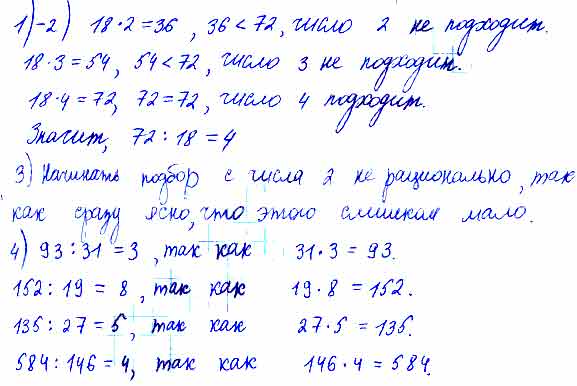 1)-2) 18·2=36, 36<72, число 2 не подходит.
18·3=54, 54<72, число 3 не подходит.
18·4=72, 72=72, число 4 подходит.
Значит, 72:18=4
3) Начинать подбор с числа 2 не рационально, так
как сразу ясно, что этого слишком мало.
4) 93:31=3, так как 31·3=93.
152:19=8, так как 19·8=152.
135:27=5, так как 27·5=135.
584:146=4, так как 146·4=584.